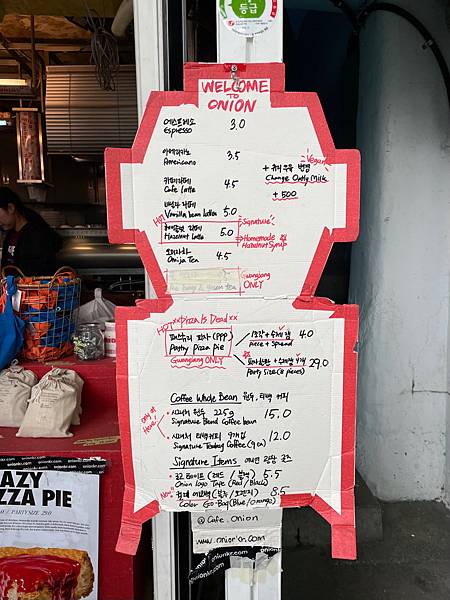 등급
WELCOME
TO
ONION
에스프레소 3.0
Espresso
아메리카노 3.5
Americano
카페라떼 4.5
Cafe Latte
Vegan
+ 우유 변경
Change Oatly Milk
+ 500
바닐라 라떼 5.0
Vanilla bean latte
HOT
헤이즐넛 라떼 5.0
Hazelnut Latte
Signature
Homemade
Hazelnut Syrup
오미자차 4.5
Omija Tea
Gwangjang
ONLY
HOT
xx Pizza Is Dead xx
페스츄리 피자 (PPP)
Pastry Pizza pie
Gwangjang ONLY
4.0
Piece + Spread
29.0
Party Size (8 pieces)
Coffee Whole Bean 원두, 티백 커피
Only at Here!
시그니처 원두 225g 15.0
Signature Blend Coffee bean
시그니처 티백커피 9개입 12.0
Signature Teabag Coffee (9 ea)
Signature Items 어니언 굿즈
로고 테이프 (레드 / 블랙) 5.5
Onion Logo Tape (Red / Black)
New
컬러 (블루 / 오렌지) 8.5
Color Go-Bag (Blue / Orange)
@Cafe.Onion
www.onionkr.com
onionkr.com
onionkr.com
AZY
ZZA PIE
PARTY SIZE 29.0